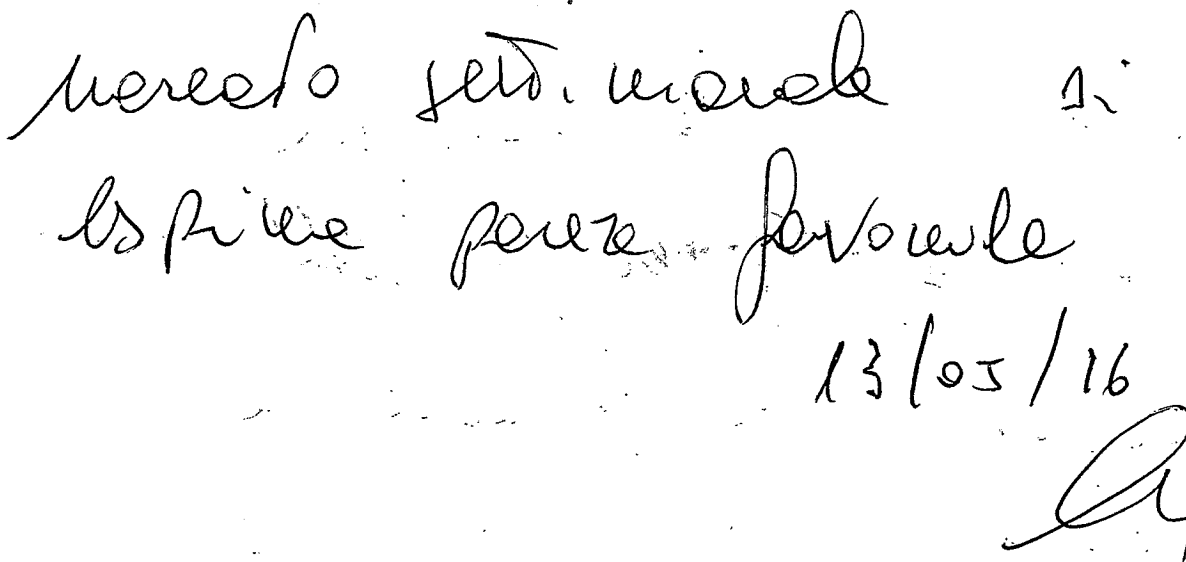 mercato settimanale si
esprime parere favorevole
13/05/16